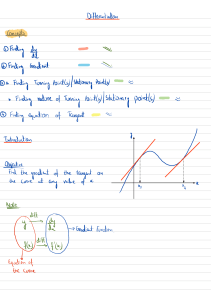 Differentiation
Concepts:
① Finding dy/dx
② Finding Gradient
③ a. Finding Turning Point(s)/Stationary Point(s)
* Finding nature of Turning Point(s)/Stationary point(s)
⑤ Finding Equation of Tangent
Introduction
Objective
Find the gradient of the tangent on
the curve at any value of x.
x
Note:
y diff. dy/dx
→ Gradient function
f(x) diff. f'(x)
Equation of
the curve